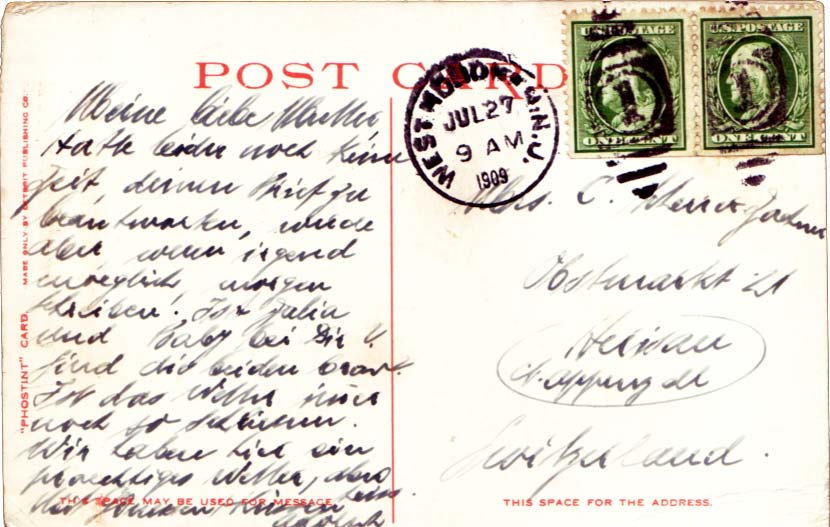 POST CARD
U.S. POSTAGE
ONE CENT
U.S. POSTAGE
ONE CENT
WEST HOBOKEN N.J.
JUL 27
9 AM
1909
Meine liebe Mutter
Hatte leider noch keine
Zeit, deinen Brief zu
beantworten, werde
aber wenn irgend
moeglich morgen
schreiben! Ist Julia
und Baby bei Dir &
sind die beiden brav.
Ist das Wetter immer
noch so
Wir haben hier ein
praechtiges Wetter,
Mrs. C.
Obstmarkt 21
Herisau
Appenzell
Switzerland.
THIS SPACE MAY BE USED FOR MESSAGE
THIS SPACE FOR THE ADDRESS.
"PHOSTINT" CARD
MADE ONLY BY DETROIT PUBLISHING CO.